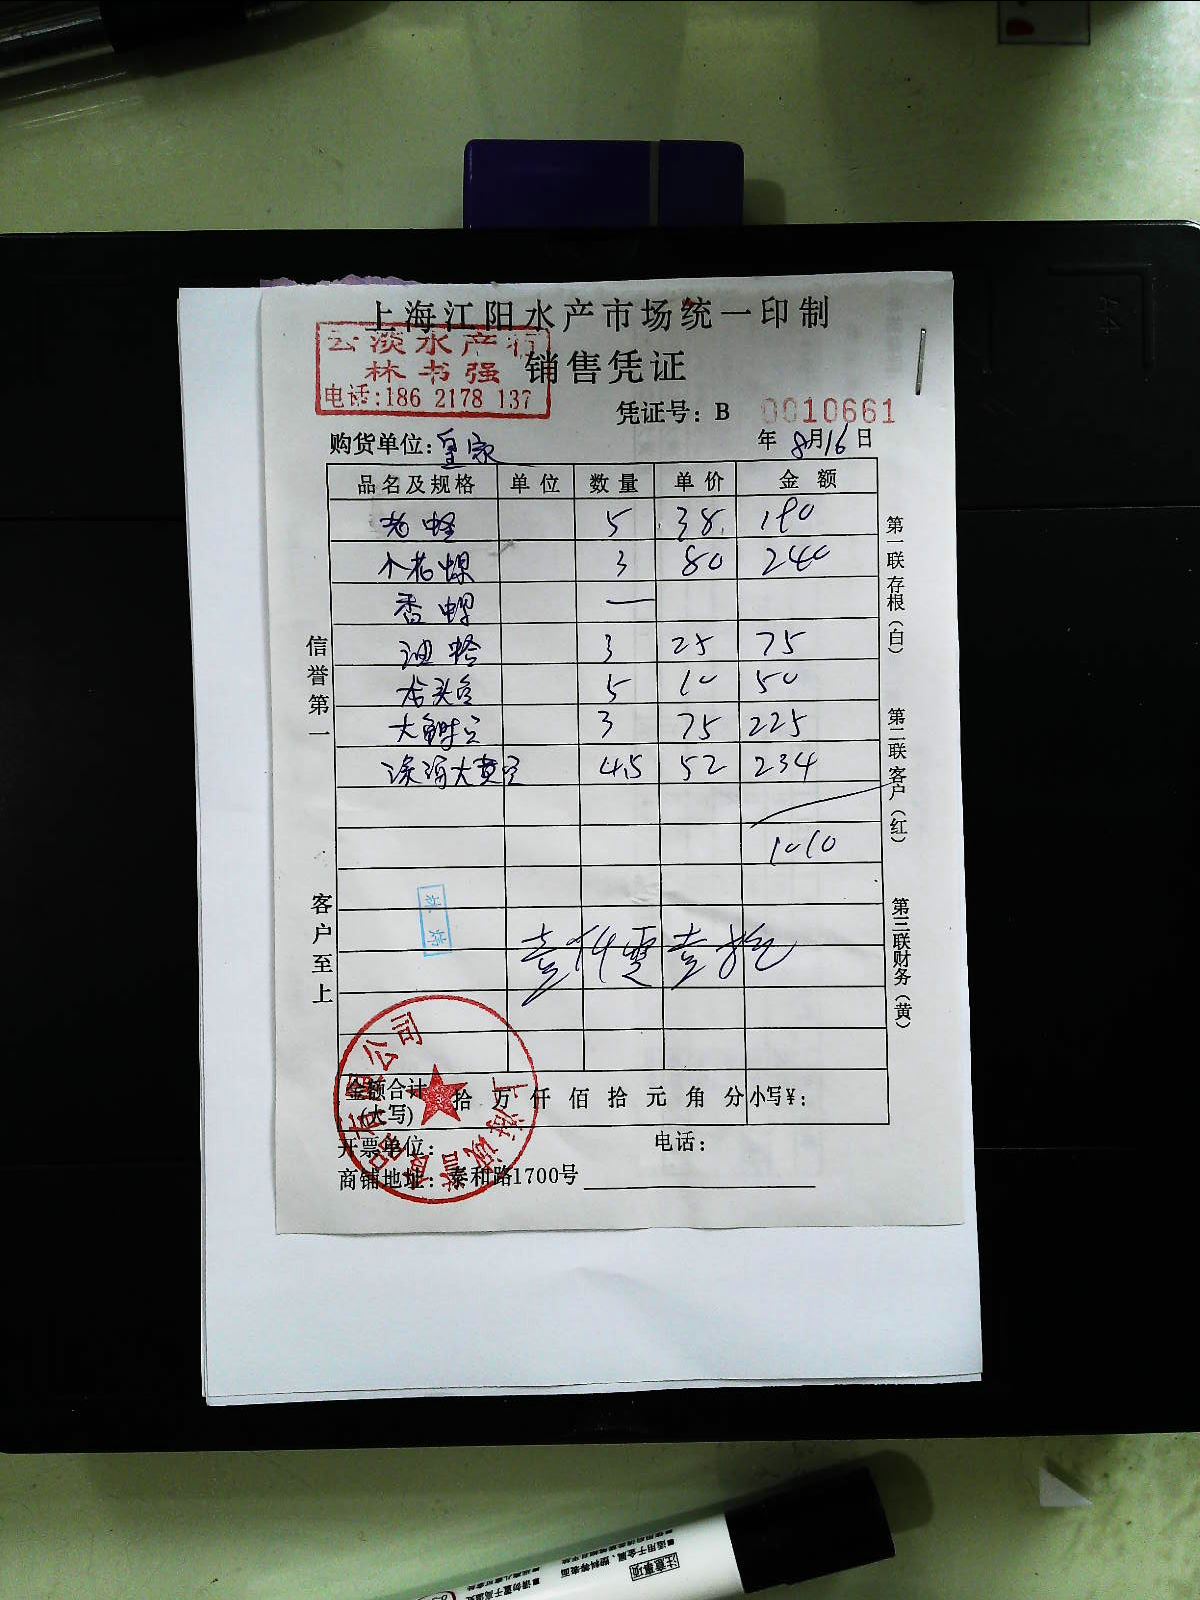 上海江阳水产市场统一印制
云淡水产行
林书强
电话:186 2178 137
销售凭证
凭证号: B 0010661
购货单位: 皇家
年 8月16日
品名及规格 单位 数量 单价 金额
老蛏 5 38 190
小花螺 3 80 240
香螺 —
油蛤 3 25 75
5 10 50
大 3 75 225
深海大黄 4.5 52 234
1010
壹仟零壹拾
信誉第一
客户至上
第一联存根(白)
第二联客户(红)
第三联财务(黄)
金额合计(大写) 拾 万 仟 佰 拾 元 角 分 小写¥:
开票单位: 电话:
商铺地址: 泰和路1700号
上海诚 有限公司
注意事项